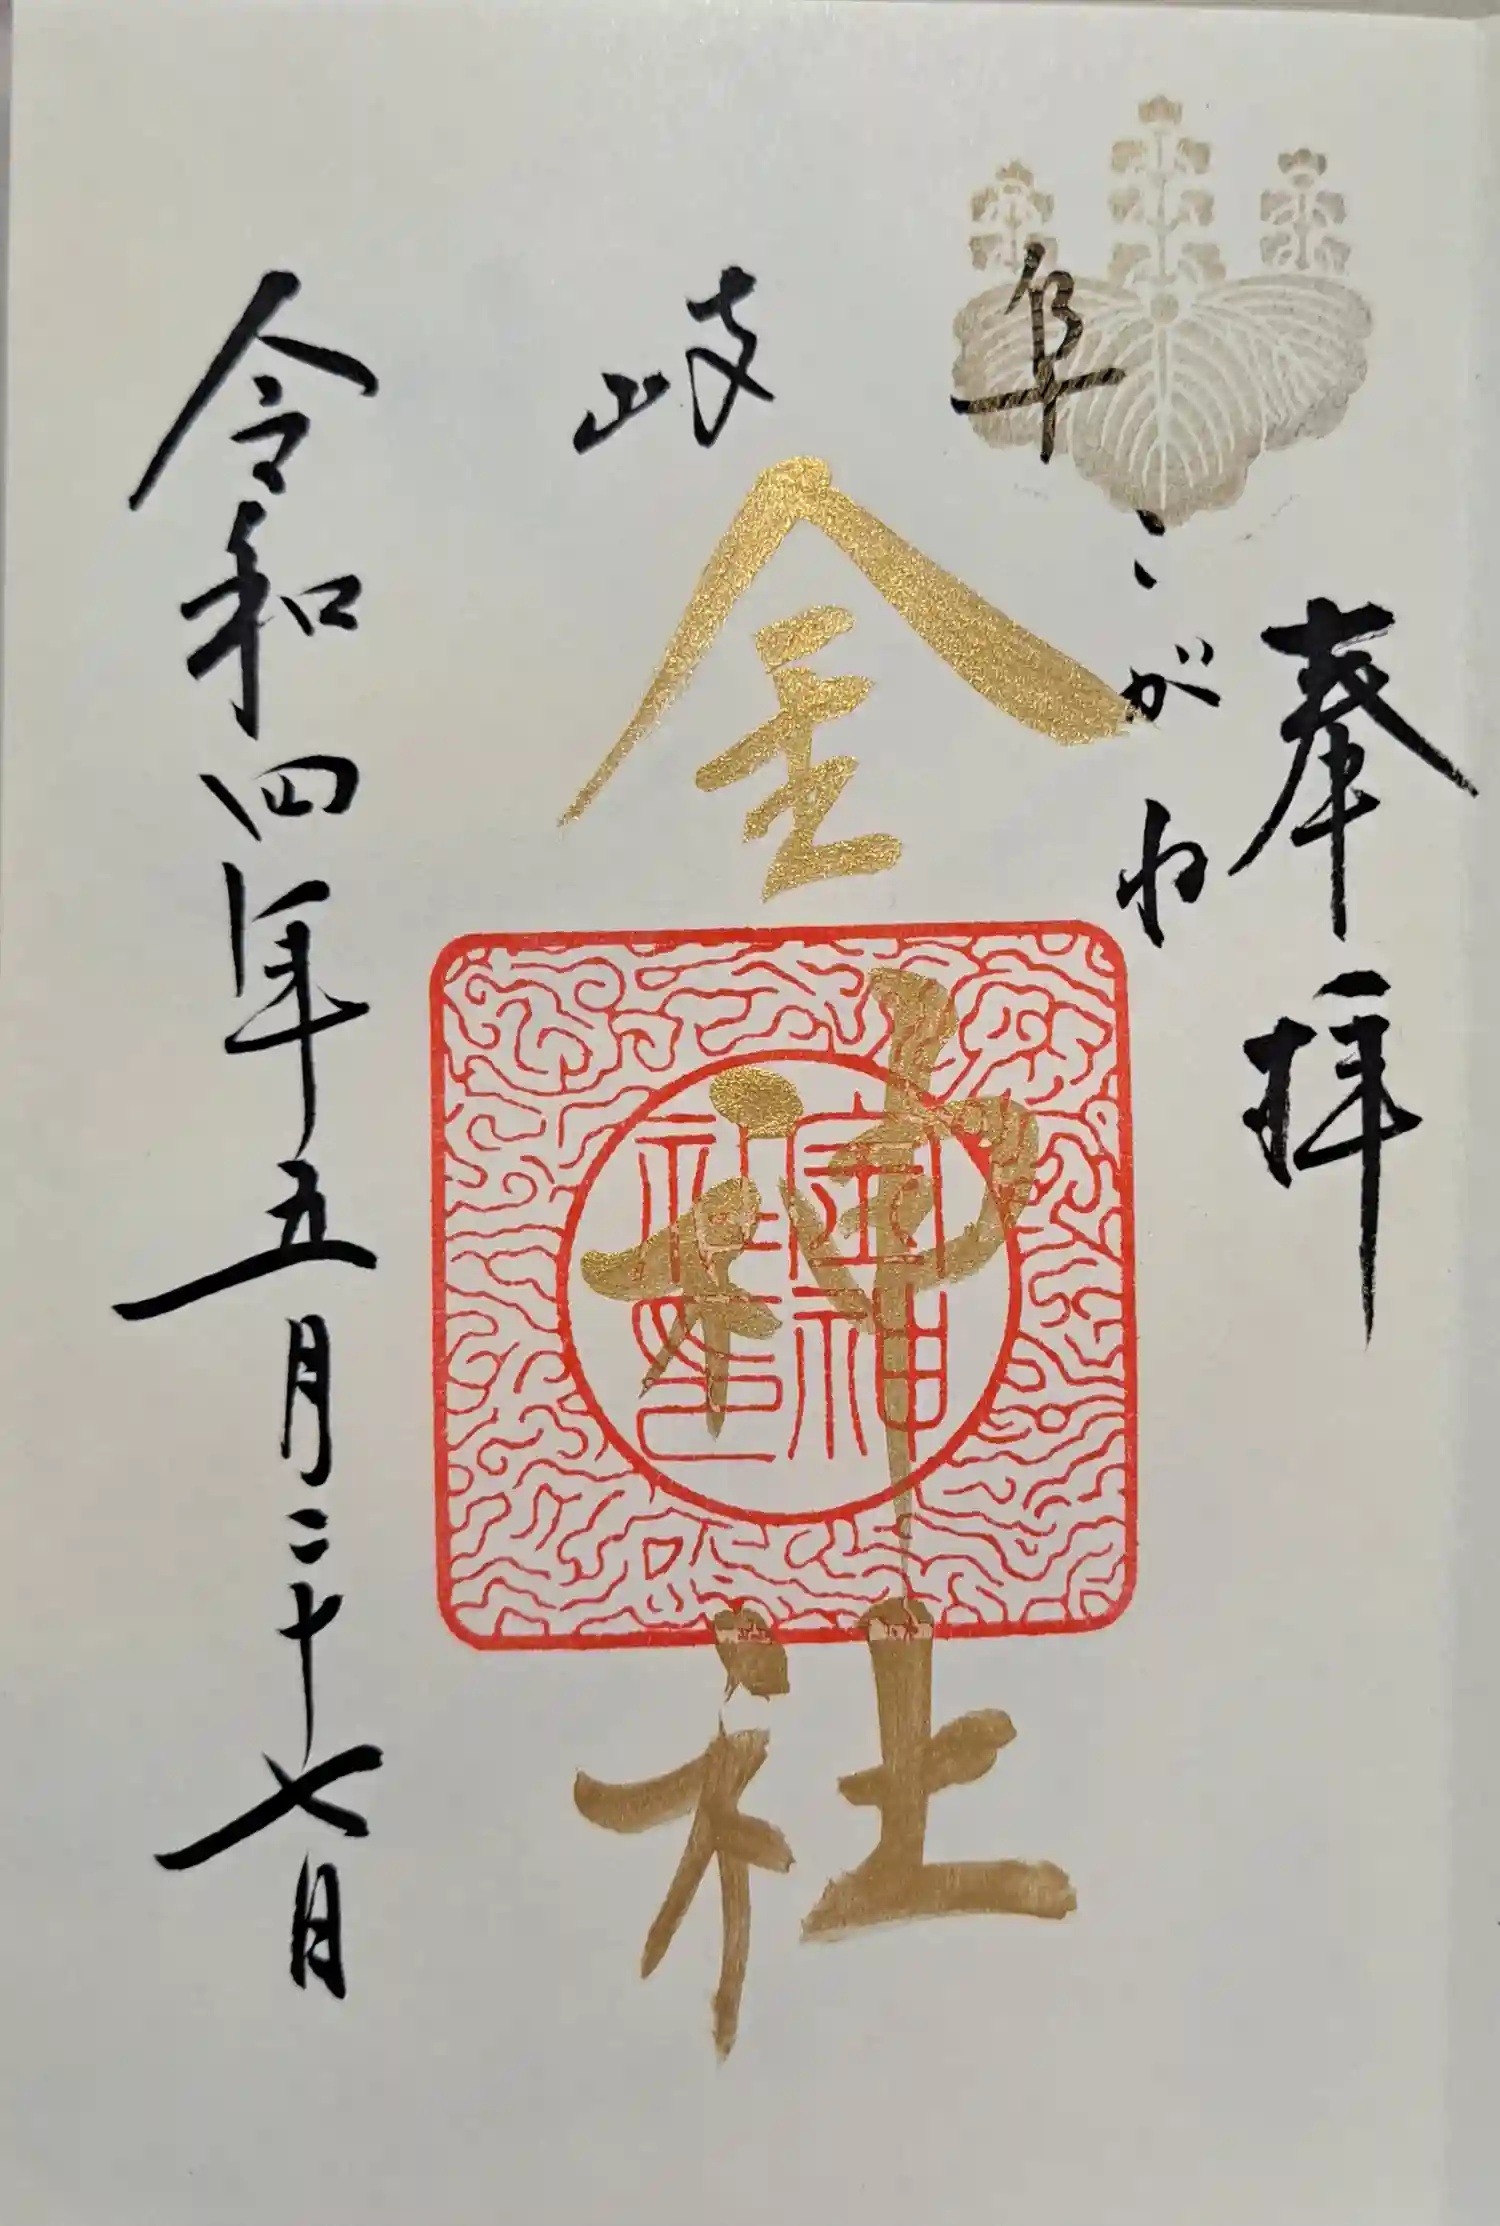 奉拝
こがね
岐阜
金神社
金神社印
令和四年五月二十七日